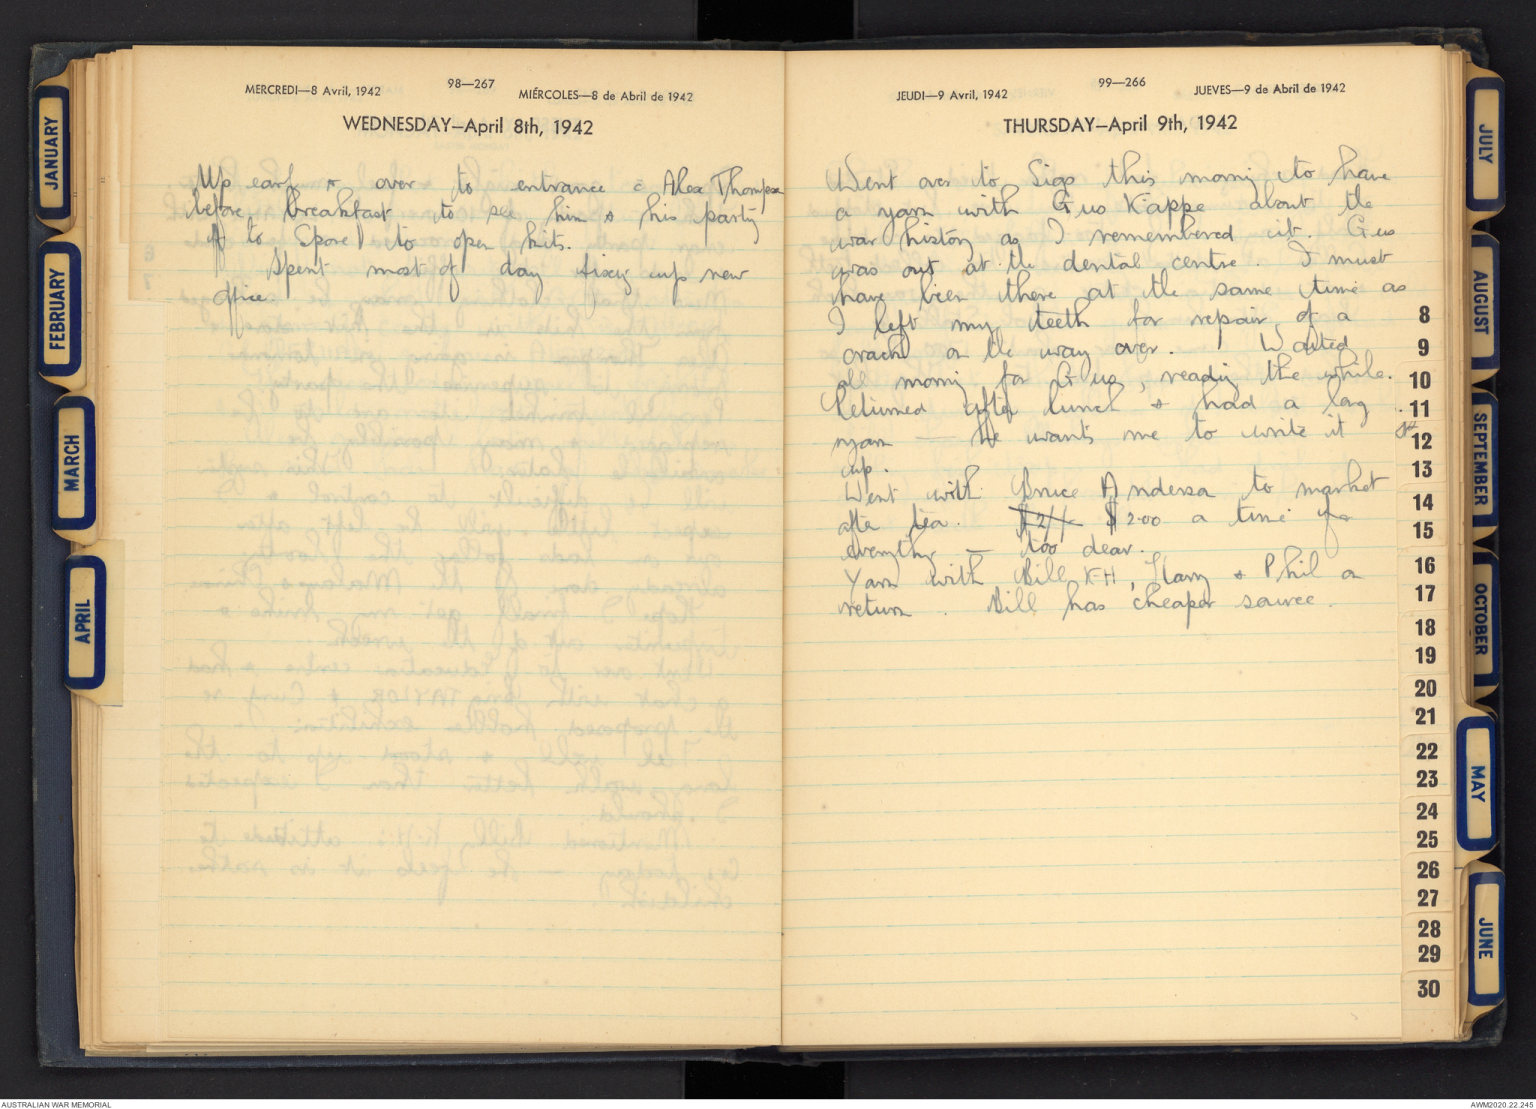 MERCREDI—8 Avril, 1942
98—267
MIÉRCOLES—8 de Abril de 1942
WEDNESDAY—April 8th, 1942
Up early & over to entrance c̄ Alex Thompson
before breakfast to see him & his party
off to Spore to open kits.
Spent most of day fixing up new
office
JEUDI—9 Avril, 1942
99—266
JUEVES—9 de Abril de 1942
THURSDAY—April 9th, 1942
Went over to Sigs this morning to have
a yarn with Gus Kappe about the
war history as I remembered it. Gus
was out at the dental centre. I must
have been there at the same time as
I left my teeth for repair of a
crack on the way over. Waited
all morning for Gus, reading the while.
Returned after lunch & had a long
yarn — He wants me to write it
up.
Went with Bruce Anderson to market
after tea. $2/- $2.00 a time for
everything — too dear.
Yarn with Bill KH, Harry & Phil on
return. Bill has cheaper source.
JANUARY
FEBRUARY
MARCH
APRIL
JULY
AUGUST
SEPTEMBER
OCTOBER
MAY
JUNE
8
9
10
11
12
13
14
15
16
17
18
19
20
21
22
23
24
25
26
27
28
29
30
AUSTRALIAN WAR MEMORIAL
AWM2020.22.245